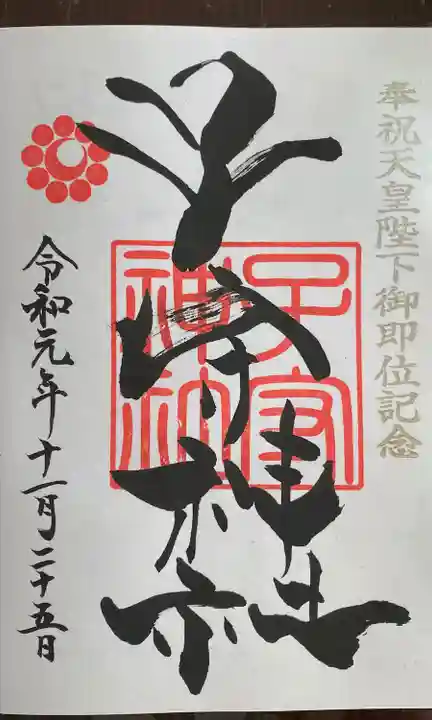 奉祝天皇陛下御即位記念
子守神社
子守神社
令和元年十一月二十五日